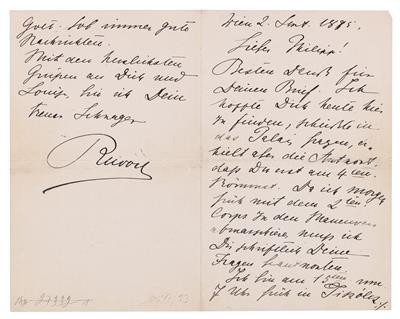 Wien 2. Sept. 1885.
Lieber Philipp!
Besten Dank für
Deinen Brief. Ich
hoffte Dich heute hier
zu finden, schickte in
das Palais fragen, er-
hielt aber die Antwort,
daß Du erst am 4ten
kommst. Da ich morgen
früh mit dem 2ten
Corps zu den Manövern
abmarschiere, muss ich
Dir schriftlich Deine
Fragen beantworten.
Ich bin am 1ten um
7 Uhr früh in
Gott. Lob immer gute
Nachrichten.
Mit den herzlichsten
Grüßen an Dich und
Louise, bin ich Dein
treuer Schwager
Rudolf